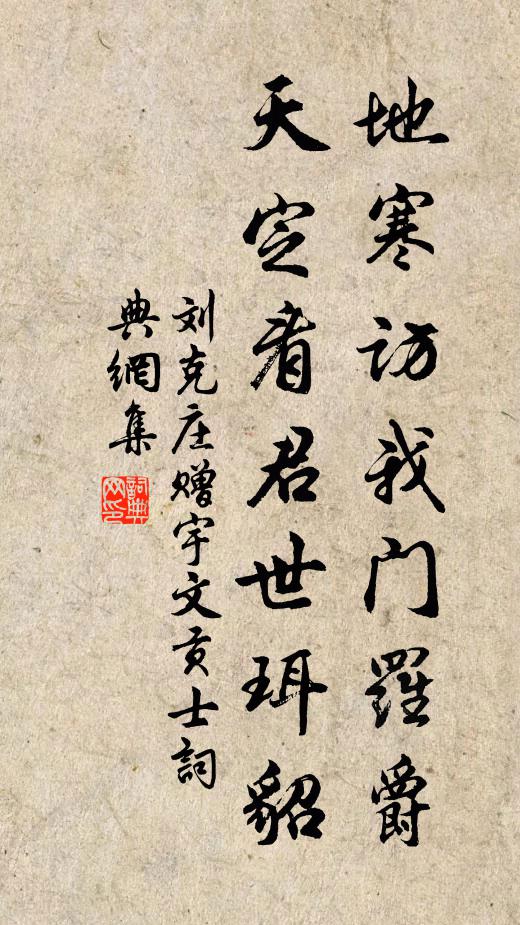 地寒访我门羅爵
天定看君世珥貂
刘克庄赠宇文贡士詞
典網集
詞典网印